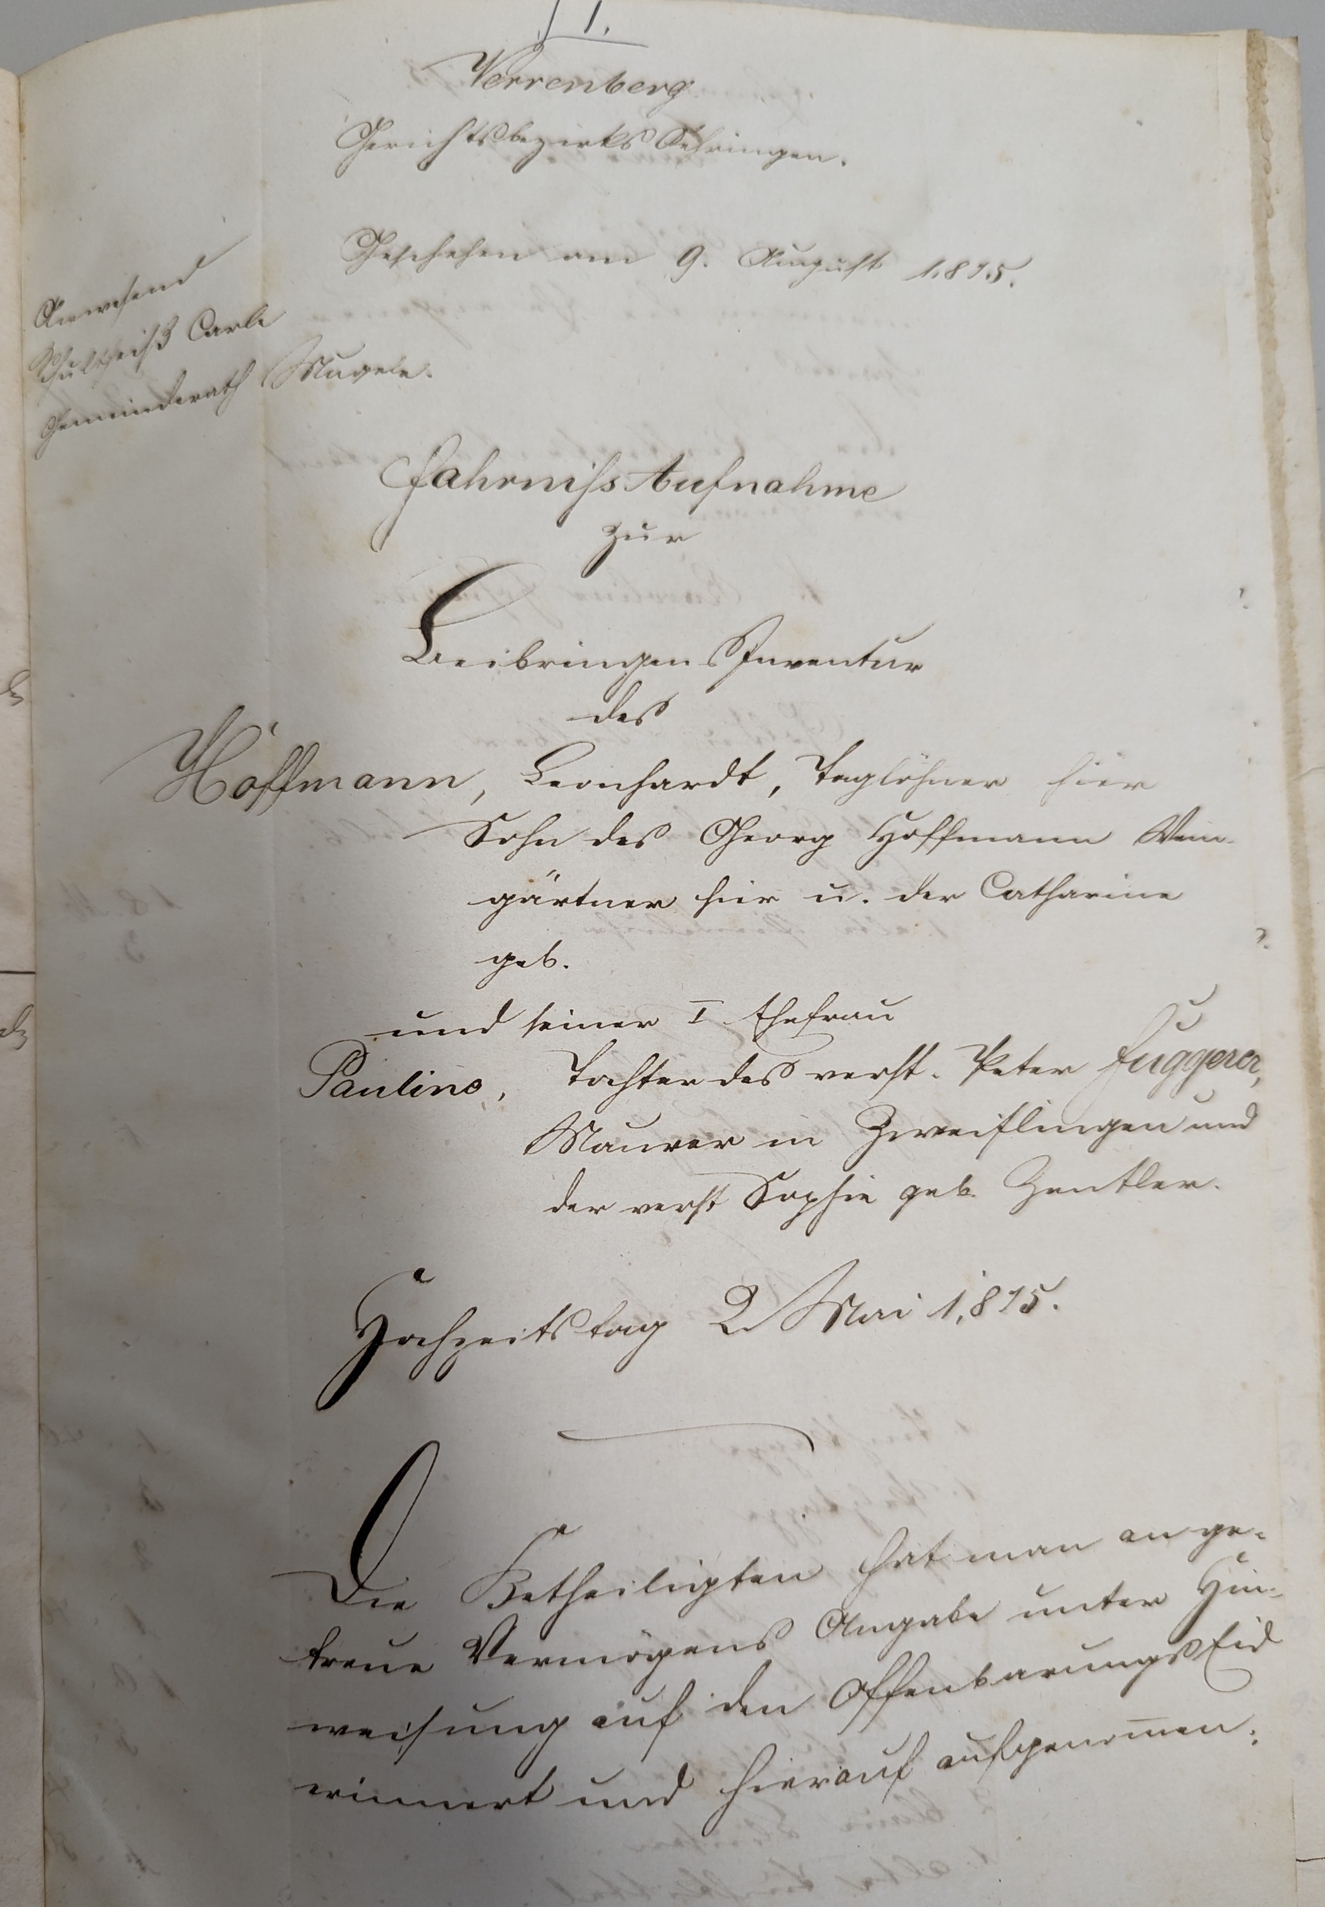 1.
Verrenberg
Gerichtsbezirks Oehringen.
Geschehen am 9. August 1,875.
Anwesend
Schultheiß Carle
Gemeinderath Mugele.
Fahrniss Aufnahme
zur
Beibringens Inventur
des
Hoffmann, Leonhardt, Taglöhner hier
Sohn des Georg Hoffmann Wein-
gärtner hier u. der Catharine
geb.
und seiner I. Ehefrau
Pauline, Tochter des verst. Peter Fuggerer,
Maurer in Zweiflingen und
der verst Sophie geb. Zentler.
Hochzeitstag 2. Mai 1,875.
Die Betheiligten hat man an ge-
treue Vermögens Angabe unter Hin-
weisung auf den Offenbarungs Eid
erinnert und hierauf aufgenommen: